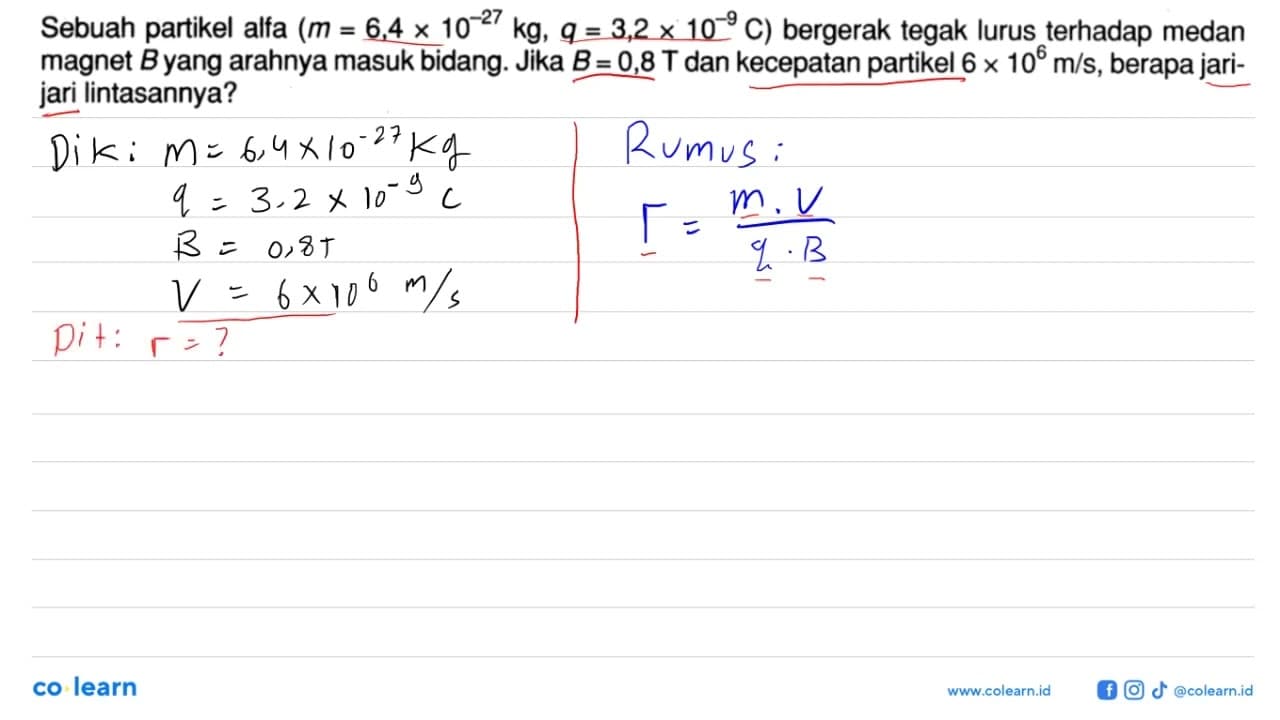 Sebuah partikel alfa (m = 6,4 × 10⁻²⁷ kg, q = 3,2 × 10⁻⁹ C) bergerak tegak lurus terhadap medan
magnet B yang arahnya masuk bidang. Jika B = 0,8 T dan kecepatan partikel 6 × 10⁶ m/s, berapa jari-
jari lintasannya?
Dik: m = 6,4 × 10⁻²⁷ Kg
q = 3.2 × 10⁻⁹ C
B = 0,8 T
V = 6 × 10⁶ m/s
Dit: r = ?
Rumus:
r = m . V / q . B
co learn
www.colearn.id
@colearn.id